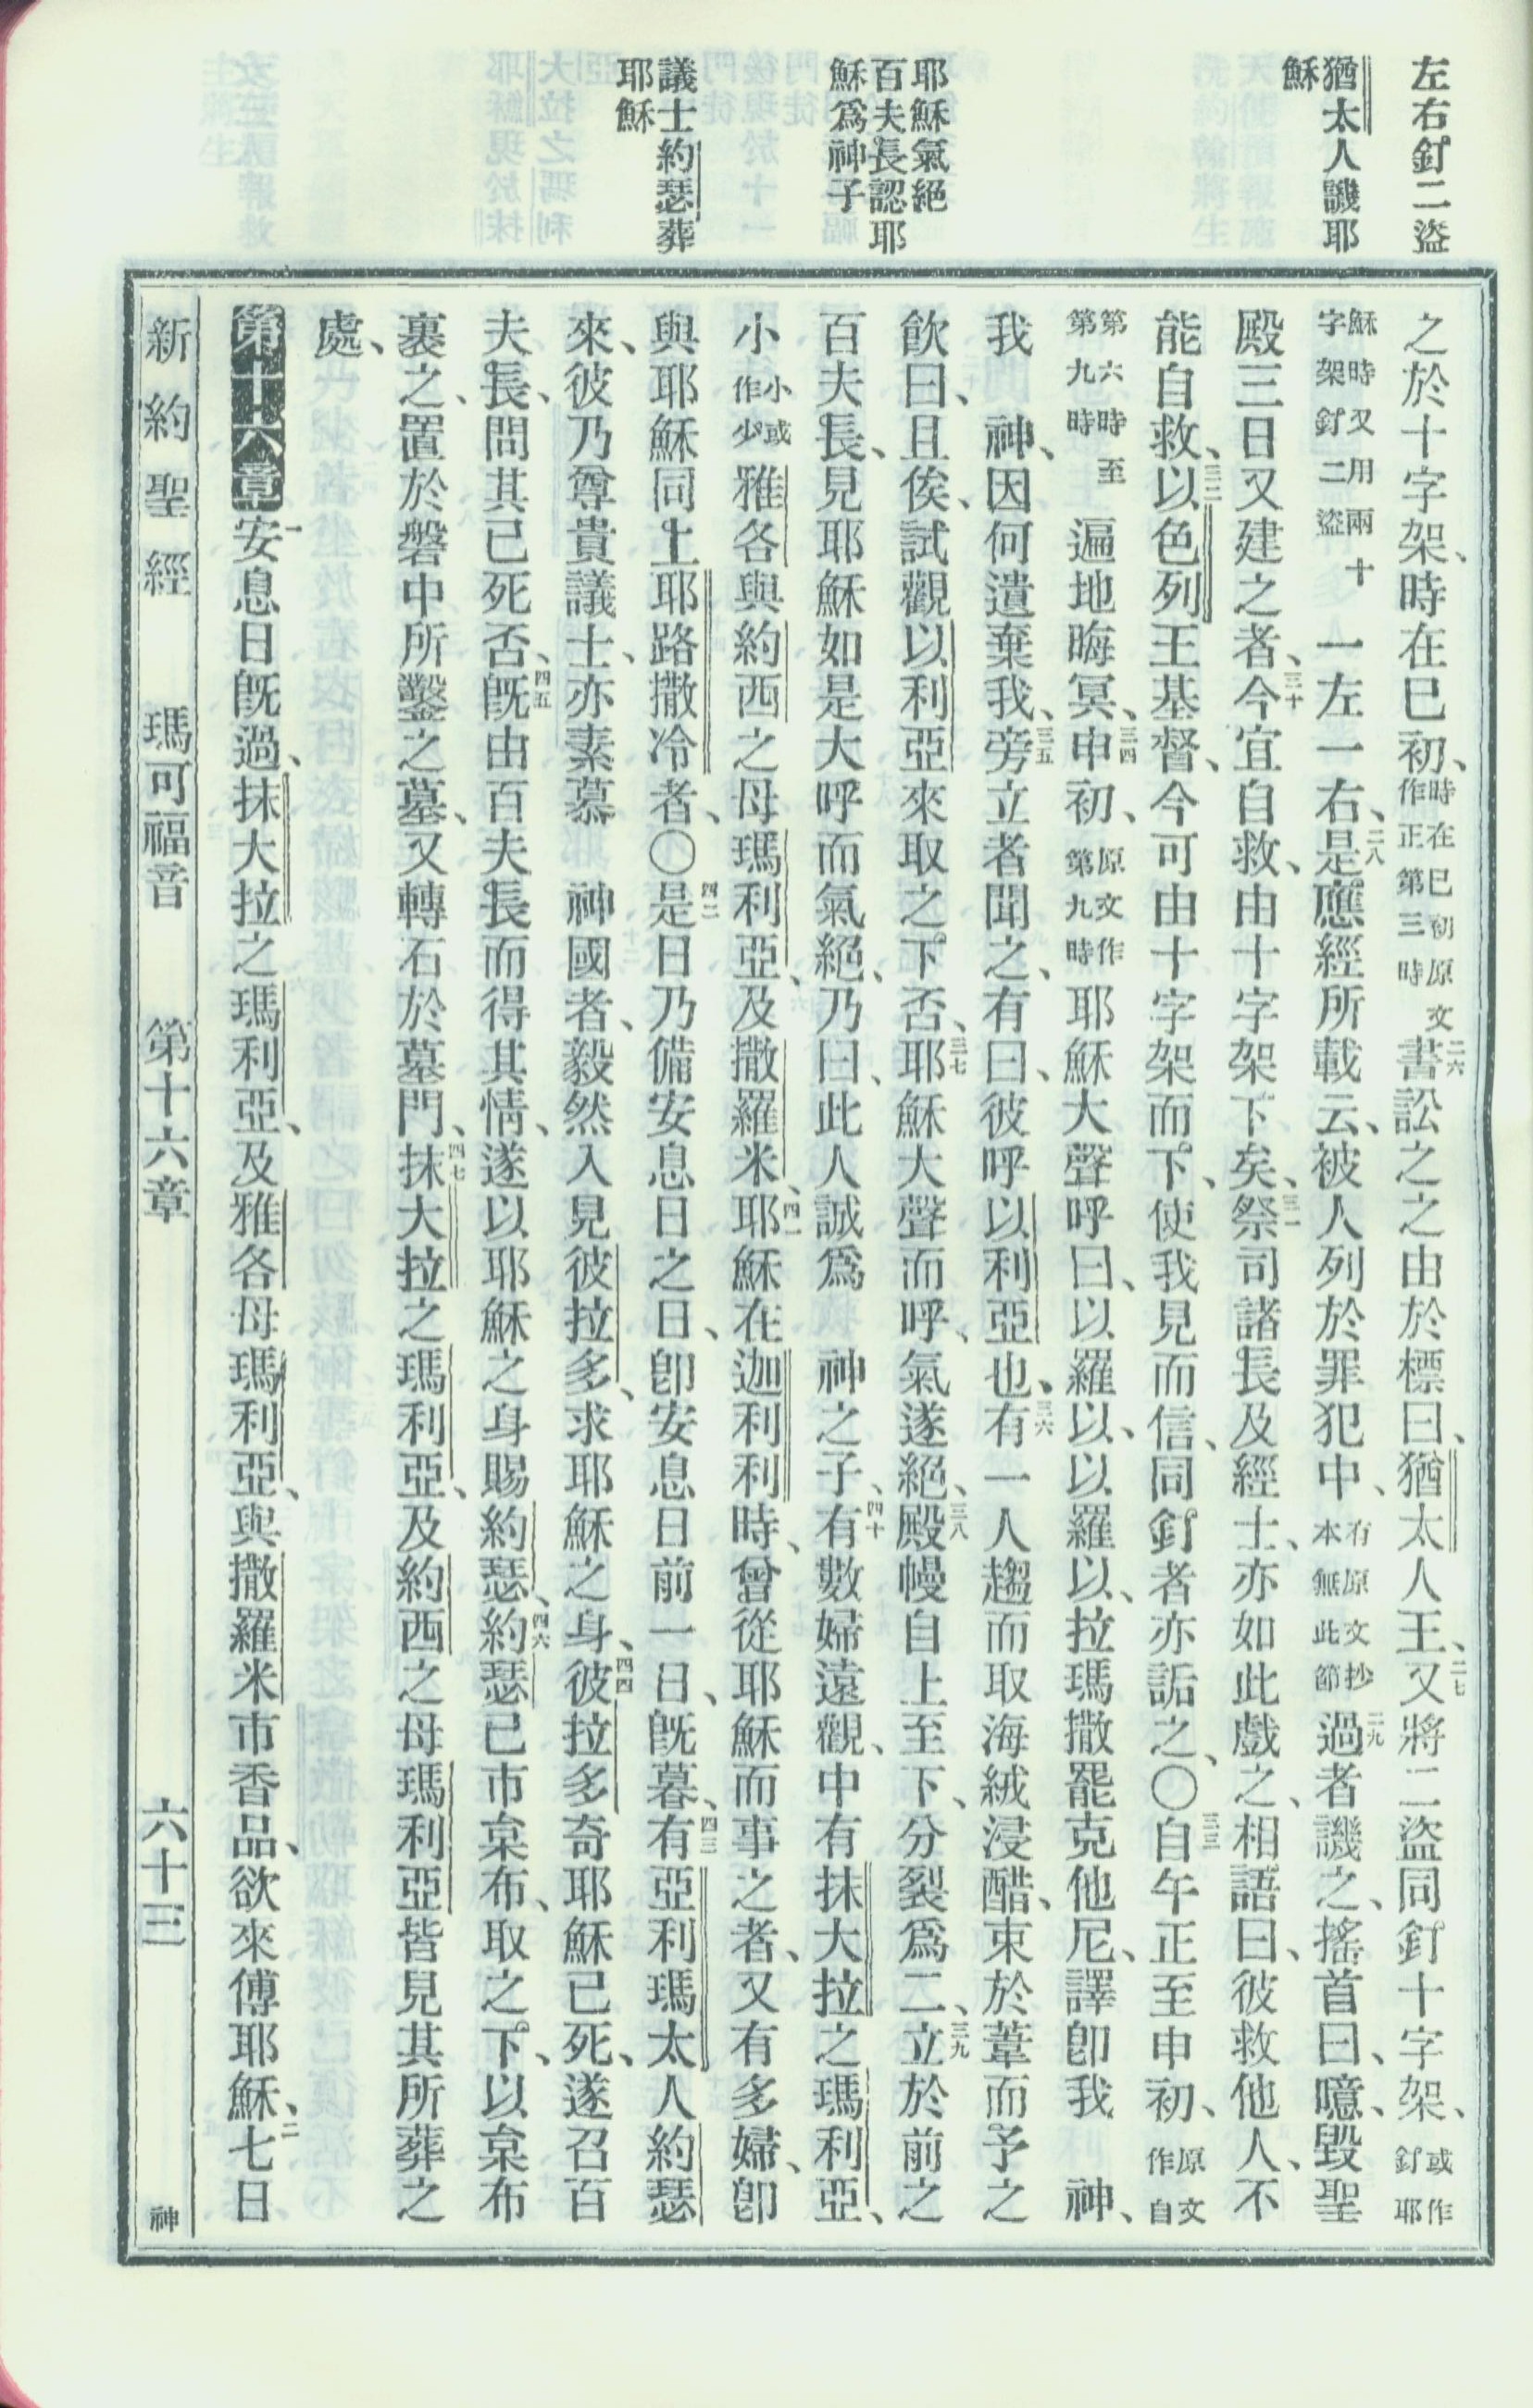 左右釘二盜
猶太人譏耶
穌
耶穌氣絕
百夫長認耶
穌爲神子
議士約瑟葬
耶穌
之於十字架、時在巳初、時在巳初原文作正第三時二六書訟之之由於標曰、猶太人王、二七又將二盜同釘十字架、或作釘耶
穌時又用兩十字架釘二盜一左一右、二八是應經所載云、被人列於罪犯中、有原文抄本無此節二九過者譏之、搖首曰、噫、毀聖
殿三日又建之者、三十今宜自救、由十字架下矣、三一祭司諸長及經士、亦如此戲之、相語曰、彼救他人、不
能自救、三二以色列王基督、今可由十字架而下、使我見而信、同釘者亦詬之、〇三三自午正至申初、原文作自
第六時至第九時遍地晦冥、三四申初、原文作第九時耶穌大聲呼曰、以羅以、以羅以、拉瑪撒罷克他尼、譯卽我 神、
我 神、因何遺棄我、三五旁立者聞之、有曰、彼呼以利亞也、三六有一人趨而取海絨浸醋、束於葦而予之
飲曰、且俟、試觀以利亞來取之下否、三七耶穌大聲而呼、氣遂絕、三八殿幔自上至下、分裂爲二、三九立於前之
百夫長、見耶穌如是大呼而氣絕、乃曰、此人誠爲 神之子、四十有數婦遠觀、中有抹大拉之瑪利亞、
小小或作少雅各與約西之母瑪利亞、及撒羅米、四一耶穌在迦利利時、曾從耶穌而事之者、又有多婦、卽
與耶穌同上耶路撒冷者、〇四二是日乃備安息日之日、卽安息日前一日、旣暮、四三有亞利瑪太人約瑟
來、彼乃尊貴議士、亦素慕 神國者、毅然入見彼拉多、求耶穌之身、四四彼拉多奇耶穌已死、遂召百
夫長、問其已死否、四五旣由百夫長而得其情、遂以耶穌之身賜約瑟、四六約瑟已市枲布、取之下、以枲布
裹之、置於磐中所鑿之墓、又轉石於墓門、四七抹大拉之瑪利亞、及約西之母瑪利亞皆見其所葬之
處、
第十六章一安息日旣過、抹大拉之瑪利亞、及雅各母瑪利亞、與撒羅米市香品、欲來傅耶穌、二七日
新約聖經 瑪可福音 第十六章 六十三 神